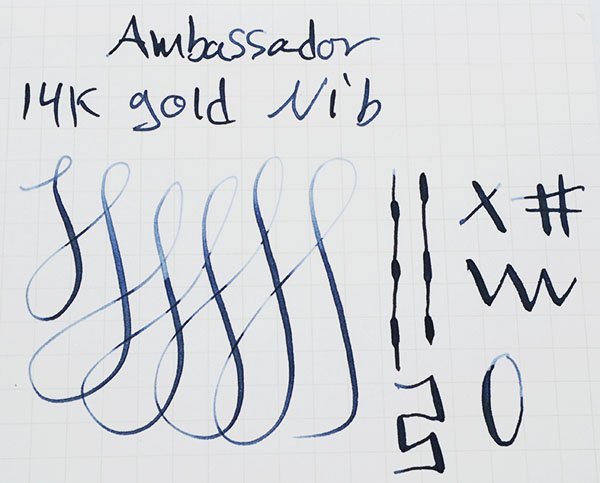 Ambassador
14K gold Nib
X #